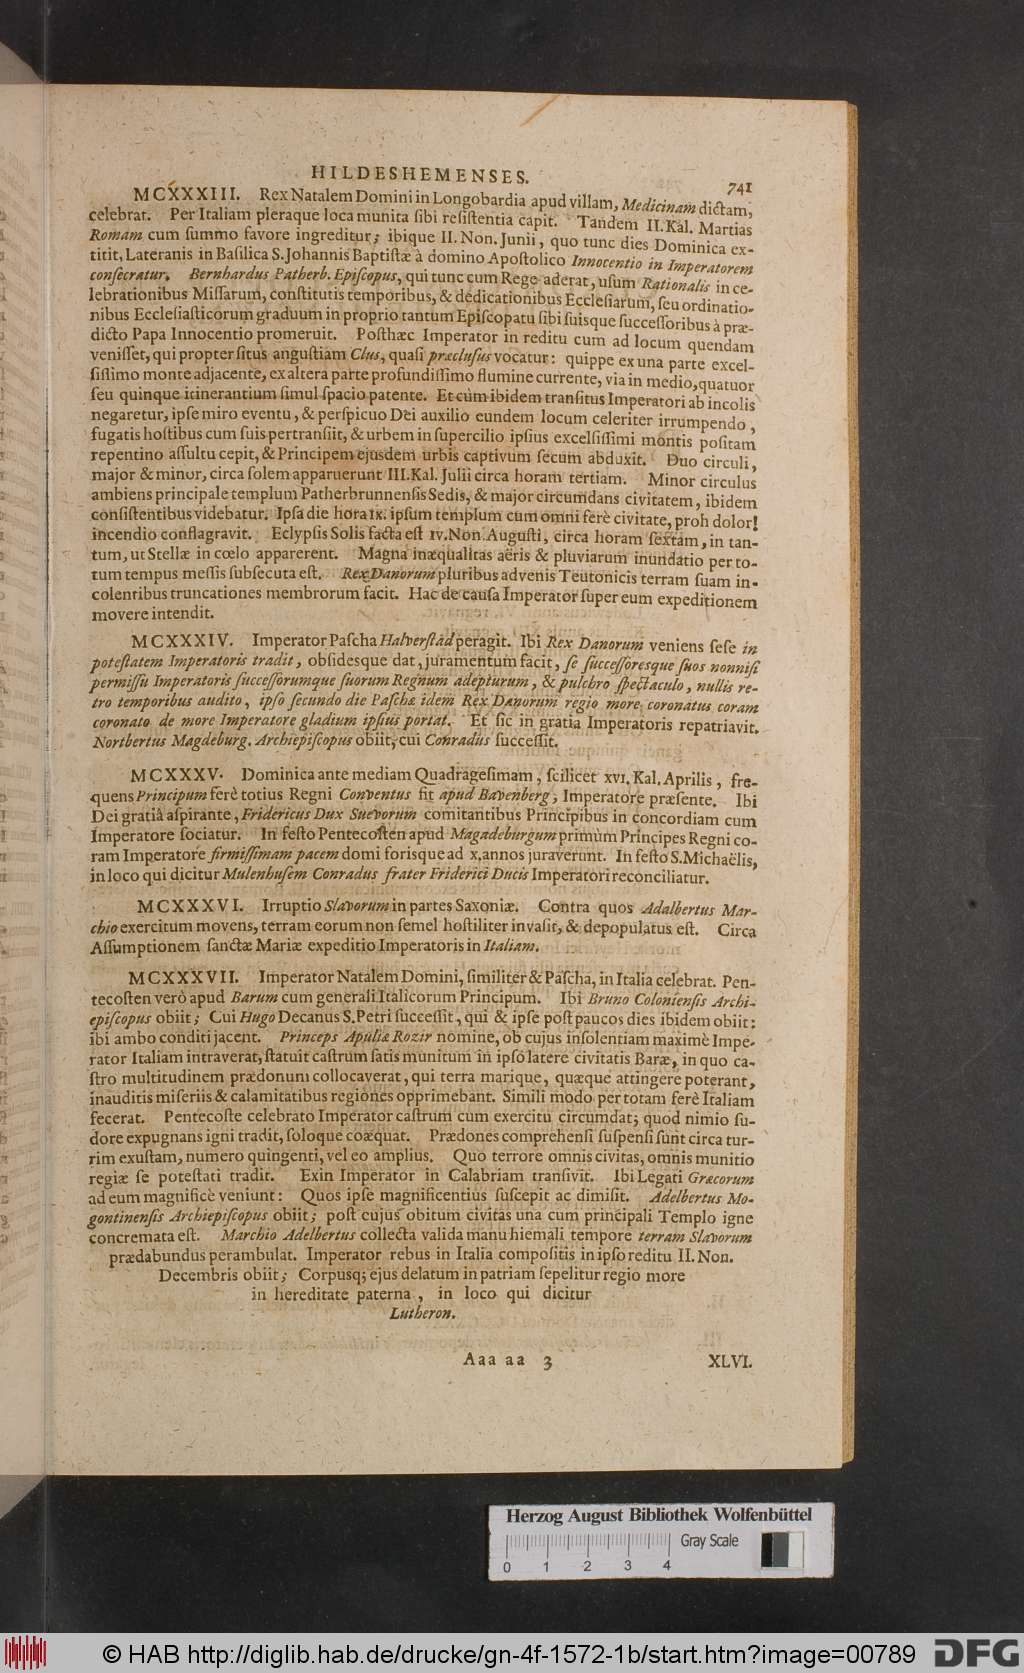 HILDESHEMENSES.
741
MCXXXIII. Rex Natalem Domini in Longobardia apud villam, Medicinam dictam,
celebrat. Per Italiam pleraque loca munita sibi resistentia capit. Tandem II. Kal. Martias
Romam cum summo favore ingreditur; ibique II. Non. Junii, quo tunc dies Dominica ex-
titit, Lateranis in Basilica S. Johannis Baptistæ à domino Apostolico Innocentio in Imperatorem
consecratur. Bernhardus Patherb. Episcopus, qui tunc cum Rege aderat, usum Rationalis in ce-
lebrationibus Missarum, constitutis temporibus, & dedicationibus Ecclesiarum, seu ordinatio-
nibus Ecclesiasticorum graduum in proprio tantum Episcopatu sibi suisque successoribus à præ-
dicto Papa Innocentio promeruit. Posthæc Imperator in reditu cum ad locum quendam
venisset, qui propter situs angustiam Clus, quasi præclusus vocatur: quippe ex una parte excel-
sissimo monte adjacente, ex altera parte profundissimo flumine currente, via in medio, quatuor
seu quinque itinerantium simul spacio patente. Et cum ibidem transitus Imperatori ab incolis
negaretur, ipse miro eventu, & perspicuo Dei auxilio eundem locum celeriter irrumpendo,
fugatis hostibus cum suis pertransiit, & urbem in supercilio ipsius excelsissimi montis positam
repentino assultu cepit, & Principem ejusdem urbis captivum secum abduxit. Duo circuli,
major & minor, circa solem apparuerunt III. Kal. Julii circa horam tertiam. Minor circulus
ambiens principale templum Patherbrunnensis Sedis, & major circumdans civitatem, ibidem
consistentibus videbatur. Ipsa die hora ix. ipsum templum cum omni ferè civitate, proh dolor!
incendio conflagravit. Eclypsis Solis facta est iv. Non. Augusti, circa horam sextam, in tan-
tum, ut Stellæ in cœlo apparerent. Magna inæqualitas aëris & pluviarum inundatio per to-
tum tempus messis subsecuta est. Rex Danorum pluribus advenis Teutonicis terram suam in-
colentibus truncationes membrorum facit. Hac de causa Imperator super eum expeditionem
movere intendit.
MCXXXIV. Imperator Pascha Halverstad peragit. Ibi Rex Danorum veniens sese in
potestatem Imperatoris tradit, obsidesque dat, juramentum facit, se successoresque suos nonnisi
permissu Imperatoris successorumque suorum Regnum adepturum, & pulchro spectaculo, nullis re-
tro temporibus audito, ipso secundo die Paschæ idem Rex Danorum regio more coronatus coram
coronato de more Imperatore gladium ipsius portat. Et sic in gratia Imperatoris repatriavit.
Nortbertus Magdeburg. Archiepiscopus obiit; cui Conradus successit.
MCXXXV. Dominica ante mediam Quadragesimam, scilicet xvi. Kal. Aprilis, fre-
quens Principum ferè totius Regni Conventus fit apud Bavenberg, Imperatore præsente. Ibi
Dei gratiâ aspirante, Fridericus Dux Suevorum comitantibus Principibus in concordiam cum
Imperatore sociatur. In festo Pentecosten apud Magadeburgum primùm Principes Regni co-
ram Imperatore firmissimam pacem domi forisque ad x. annos juraverunt. In festo S. Michaëlis,
in loco qui dicitur Mulenhusem Conradus frater Friderici Ducis Imperatori reconciliatur.
MCXXXVI. Irruptio Slavorum in partes Saxoniæ. Contra quos Adalbertus Mar-
chio exercitum movens, terram eorum non semel hostiliter invasit, & depopulatus est. Circa
Assumptionem sanctæ Mariæ expeditio Imperatoris in Italiam.
MCXXXVII. Imperator Natalem Domini, similiter & Pascha, in Italia celebrat. Pen-
tecosten verò apud Barum cum generali Italicorum Principum. Ibi Bruno Coloniensis Archi-
episcopus obiit; Cui Hugo Decanus S. Petri successit, qui & ipse post paucos dies ibidem obiit:
ibi ambo conditi jacent. Princeps Apuliæ Rozir nomine, ob cujus insolentiam maximè Impe-
rator Italiam intraverat, statuit castrum satis munitum in ipso latere civitatis Baræ, in quo ca-
stro multitudinem prædonum collocaverat, qui terra marique, quæque attingere poterant,
inauditis miseriis & calamitatibus regiones opprimebant. Simili modo per totam ferè Italiam
fecerat. Pentecoste celebrato Imperator castrum cum exercitu circumdat; quod nimio su-
dore expugnans igni tradit, soloque coæquat. Prædones comprehensi suspensi sunt circa tur-
rim exustam, numero quingenti, vel eo amplius. Quo terrore omnis civitas, omnis munitio
regiæ se potestati tradit. Exin Imperator in Calabriam transivit. Ibi Legati Græcorum
ad eum magnificè veniunt: Quos ipse magnificentius suscepit ac dimisit. Adelbertus Mo-
gontinensis Archiepiscopus obiit; post cujus obitum civitas una cum principali Templo igne
concremata est. Marchio Adelbertus collecta valida manu hiemali tempore terram Slavorum
prædabundus perambulat. Imperator rebus in Italia compositis in ipso reditu II. Non.
Decembris obiit; Corpusq; ejus delatum in patriam sepelitur regio more
in hereditate paterna, in loco qui dicitur
Lutheron.
Aaa aa 3
XLVI.
Herzog August Bibliothek Wolfenbüttel
Gray Scale
0 1 2 3 4
© HAB http://diglib.hab.de/drucke/gn-4f-1572-1b/start.htm?image=00789
DFG